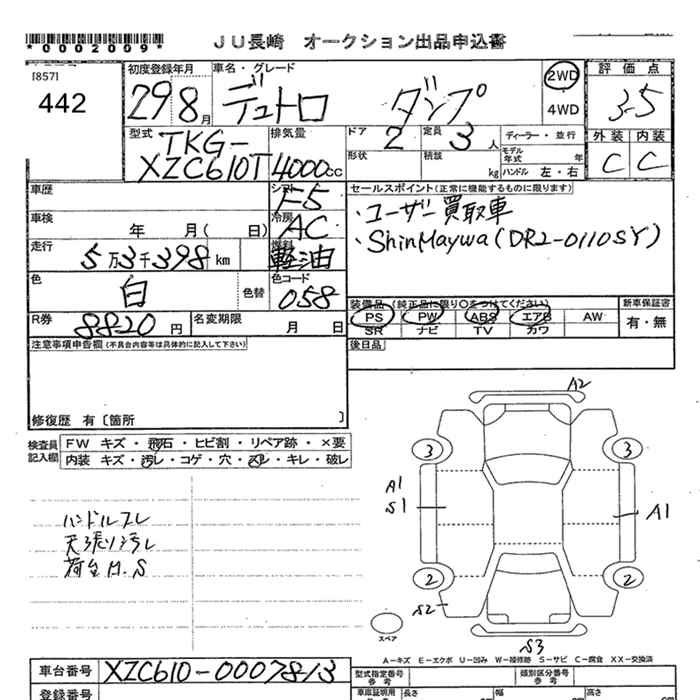 *0002009*
JU長崎 オークション出品申込書
[857]
442
初度登録年月 29 8月
車名・グレード デュトロ ダンプ
2WD
4WD
評価点 3.5
型式 TKG-XZC610T
排気量 4000cc
ドア 2
定員 3人
形状
積載 kg
ディーラー・並行
モデル年式 年
ハンドル 左・右
外装 内装
C C
車歴
シフト F5
セールスポイント(正常に機能するものに限ります)
・ユーザー買取車
・ShinMaywa(DR2-0110SY)
車検 年 月( 日)
冷房 AC
走行 5万3千398km
燃料 軽油
色 白
色替
色コード 058
R券 8820円
名変期限 月 日
装備品(純正品に限り○をつけてください)
PS PW ABS エアB AW
SR ナビ TV カワ
新車保証書
有・無
注意事項申告欄(不具合内容等は具体的に記入して下さい)
後日品
修復歴 有〔箇所 〕
検査員記入欄
FW キズ・飛石・ヒビ割・リペア跡・×要
内装 キズ・汚レ・コゲ・穴・スレ・キレ・破レ
ハンドルスレ
天張リ汚レ
荷台H.S
A2
3 3
A1
S1
A1
2 2
S2
S3
スペア
A-キズ E-エクボ U-凹み W-補修跡 S-サビ C-腐食 XX-交換済
車台番号 XZC610-0007813
登録番号
型式指定番号 参考
類別区分番号 参考
車庫証明用 参考
長さ
幅
高さ